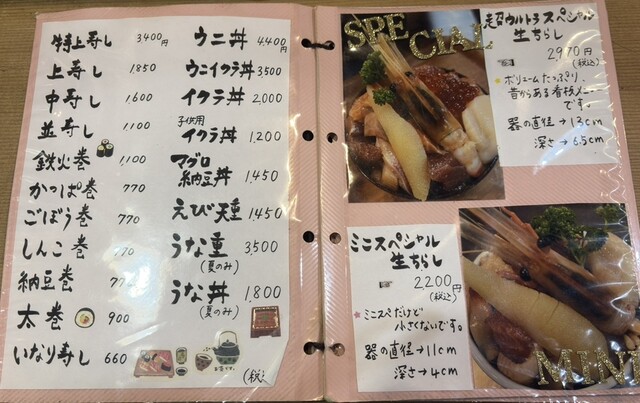 特上寿し 3,400円
上寿し 1,850
中寿し 1,600
並寿し 1,100
鉄火巻 1,100
かっぱ巻 770
ごぼう巻 770
しんこ巻 770
納豆巻 770
太巻 900
いなり寿し 660
ウニ丼 4,400円
ウニイクラ丼 3,500
イクラ丼 2,000
子供用
イクラ丼 1,200
マグロ
納豆丼 1,450
えび天重 1,450
うな重 3,500
(夏のみ)
うな丼 1,800
(夏のみ)
(税
SPECIAL
超ウルトラスペシャル
生ちらし
2,970円
(税込)
ボリュームたっぷり、
昔からある看板メニュー
です。
器の直径→13cm
深さ→6.5cm
ミニスペシャル
生ちらし
2,200円
(税込)
ミニスペだけど
小さくないです。
器の直径→11cm
深さ→4cm
MINI